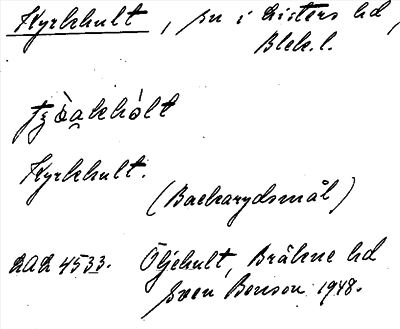 Kyrkhult, sn i Listers hd,
Blek. l.
Kyrkhult.
(Backarydsmål)
LAL 4533. Öljehult, Bräkne hd
Sven Benson 1948.